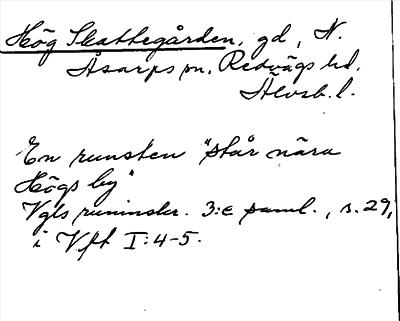 Hög Skattegården, gd, N.
Åsarps sn, Redvägs hd,
Älvsb. l.
En runsten "står nära
Högs by"
Vgls runinskr. 3:e saml., s. 29,
i Vft I:4-5.